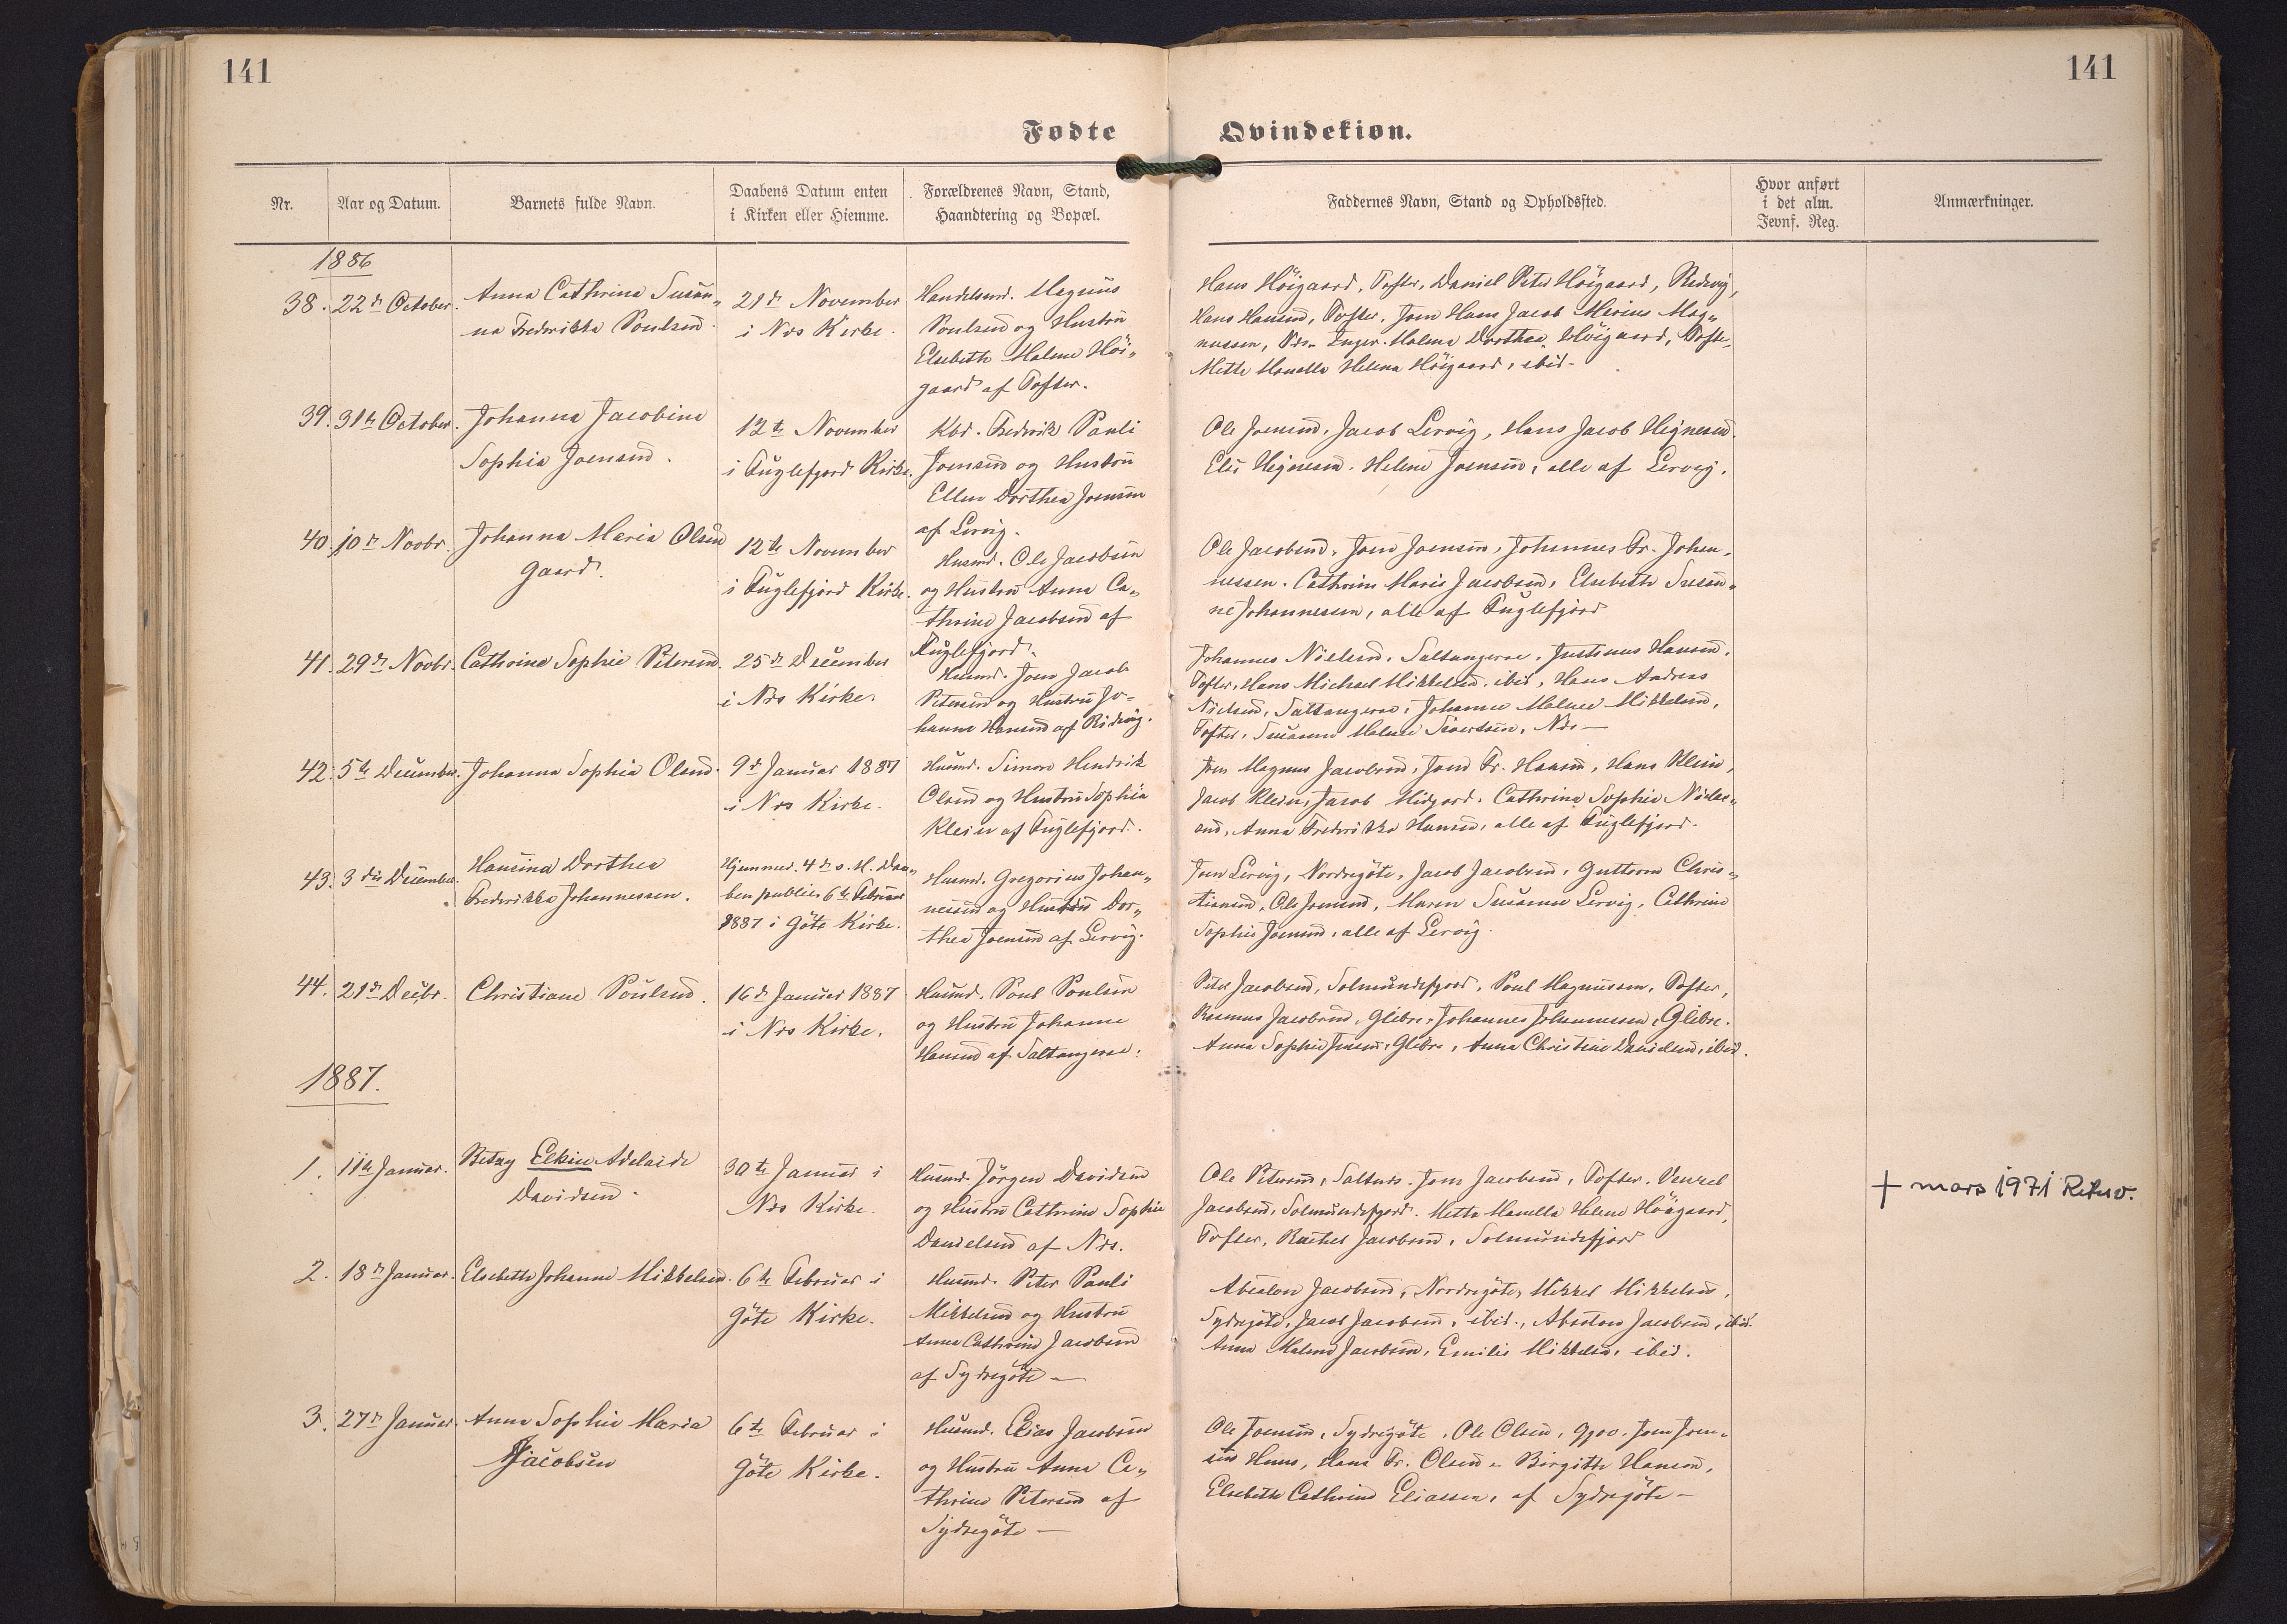 141
141
Fødte
Qvindekiøn.
Nr.
Aar og Datum.
Barnets fulde Navn.
Daabens Datum enten
i Kirken eller Hiemme.
Forældrenes Navn, Stand,
Haandtering og Bopæl.
Faddernes Navn, Stand og Opholdssted.
Hvor anført
i det alm.
Jevnf. Reg.
Anmærkninger.
1886
38.
22de October.
Anna Cathrina Susan„
na Frederikka Poulsen.
21de November
i Næs Kirke.
Handelsmd. Magnus
Poulsen og Hustru
Elsebeth Malene Höi„
gaard af Tofter.
Hans Höigaard, Tofter, Daniel Peter Höigaard, Redevig,
Hans Hansen, Tofter, Joen Hans Jacob Marius Mag„
nussen, Næs. Inger Malene Dorthea Höigaard, Tofte,
Mette Manella Helena Höigaard, ibid-
39.
31te October.
Johanna Jacobine
Sophia Joensen.
12te November
i Fuglefjord Kirke.
Kbd. Fredrik Pauli
Joensen og Hustru
Ellen Dorthea Joensen
af Lervig.
Ole Joensen, Jacob Lervig, Hans Jacob Hignesen.
Elis Hignesen. Helene Joensen, alle af Lervig.
40.
10de Novbr.
Johanna Maria Olsen
gaard.
12te November
i Fuglefjord Kirke.
Husmd. Ole Jacobsen
og Hustru Anna Ca„
thrine Jacobsen af
Fuglefjord.
Ole Jacobsen, Joen Joensen, Johannes Fr. Johan„
nessen. Cathrine Marie Jacobsen, Elsebeth Susan„
ne Johannesen, alle af Fuglefjord
41.
29de Novbr.
Cathrine Sophie Petersen.
25de December
i Næs Kirke.
Husmd. Joen Jacob
Petersen og Hustru Jo-
hanne Hansen af Ridevig.
Johannes Nielsen, Saltangerae, Justinus Hansen,
Tofter, Hans Michael Mikkelsen, ibid, Hans Andreas
Nielsen, Saltangerae, Johanne Malene Mikkelsen,
Tofter, Susanne Malene Sivertsen, Næs —
42.
5te December.
Johanna Sophia Olsen.
9de Januar 1887
i Næs Kirke.
Husmd. Simon Hendrik
Olsen og Hustru Sophia
Klein af Fuglefjord.
Joen Magnus Jacobsen, Joen Fr. Hansen, Hans Klein,
Jacob Klein, Jacob Midjord. Cathrine Sophie Niclas„
en, Anna Fredrikka Hansen, alle af Fuglefjord.
43.
3die December.
Hansina Dorthea
Frederikka Johannessen.
Hjemmed. 4de s. M. Daa„
ben public. 6te Februar
1887 i Göte Kirke.
Husmd. Gregorius Johan„
nessen og Hustru Dor„
thea Joensen af Lervig.
Joen Lervig, Nordregöte, Jacob Jacobsen, Guttorm Chris„
tiansen, Ole Joensen, Maren Susanne Lervig, Cathrine
Sophie Joensen, alle af Lervig.
44.
21de Decbr.
Christiane Poulsen.
16de Januar 1887
i Næs Kirke.
Husmd. Poul Poulsen
og Hustru Johanne
Hansen af Saltangerae.
Peter Jacobsen, Solmundefjord, Poul Magnussen, Tofter,
Rasmus Jacobsen, Glibre, Johannes Johannessen, Glibre.
Anna Sophie Joensen, Glibre, Anna Christine Danielsen, ibid.
1887.
1.
11te Januar.
Betzy Elkin Adelaide
Davidsen.
30te Januar i
Næs Kirke.
Husmd. Jörgen Davidsen
og Hustru Cathrine Sophie
Danielsen af Næs.
Ole Petersen, Saltnæs. Joen Jacobsen, Tofter. Venzel
Jacobsen, Solmundefjord. Mette Manella Helene Höigaard,
Tofter, Rachel Jacobsen, Solmundefjord
† mars 1971
2.
18de Januar.
Elsebeth Johanne Mikkelsen.
6te Februar i
Göte Kirke.
Husmd. Peter Pauli
Mikkelsen og Hustru
Anna Cathrine Jacobsen
af Sydregöte —
Absalon Jacobsen, Nordregöte, Mikkel Mikkelsen,
Sydregöte, Jacob Jacobsen, ibid., Absalon Jacobsen, ibid.
Anna Malene Jacobsen, Emilie Mikkelsen, ibid.
3.
27de Januar.
Anna Sophie Maria
Jacobsen
6te Februar i
Göte Kirke.
Husmd. Elias Jacobsen
og Hustru Anna Ca„
thrine Petersen af
Sydregöte —
Ole Joensen, Sydregöte, Ole Olsen, Gjov. Joen Joen„
sen Hans, Hans Fr. Olsen. Birgitte Hansen,
Elsebeth Cathrine Eliassen, af Sydregöte —